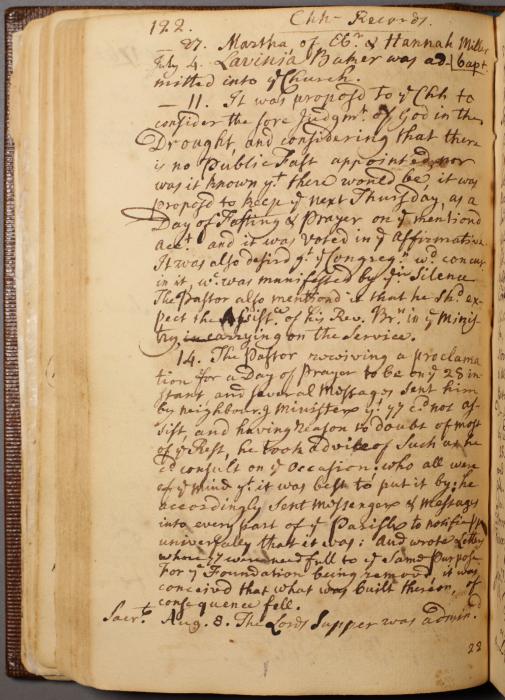 122. Chh Records.
— 27. Martha, of Eb.r & Hannah Miller
July 4. Lavinia Baker was ad- [bapt.
mitted into ye Church.
— 11. It was propos'd to ye Chh to
consider the sore Judgm.t of God in the
Drought, and considering that there
is no Public Fast appointed, nor
was it known yt there would be, it was
propos'd to keep ye next Thursday, as a
Day of Fasting & Prayer on ye mentiond
acc.t and it was voted in ye affirmative.
It was also desird yt ye Congregn wd concur
in it, wc was manifested by yir Silence
The Pastor also mentiond it that he shd ex-
pect the Assist.ce of his Rev. Brn in ye Minis-
try in carrying on the Service.
14. The Pastor receiving a proclama
tion for a Day of Prayer to be on ye 28 in-
stant and several Messages sent him
by neighbour.g Ministers yt yy cd not as-
sist, and having reason to doubt of most
of ye Rest, he took advice of such as he
cd consult on ye Occasion: who all were
of ye mind yt it was best to put it by: he
accordingly sent Messengers & Messages
into every part of ye Parish to notifie
universally that it was: And wrote Letters
where yy were needfull to ye same Purpose
For ye Foundation being remov'd, it was
conceived that what was built thereon, of
consequence fell.
Sacr.t Aug. 8. The Lords Supper was admind
22